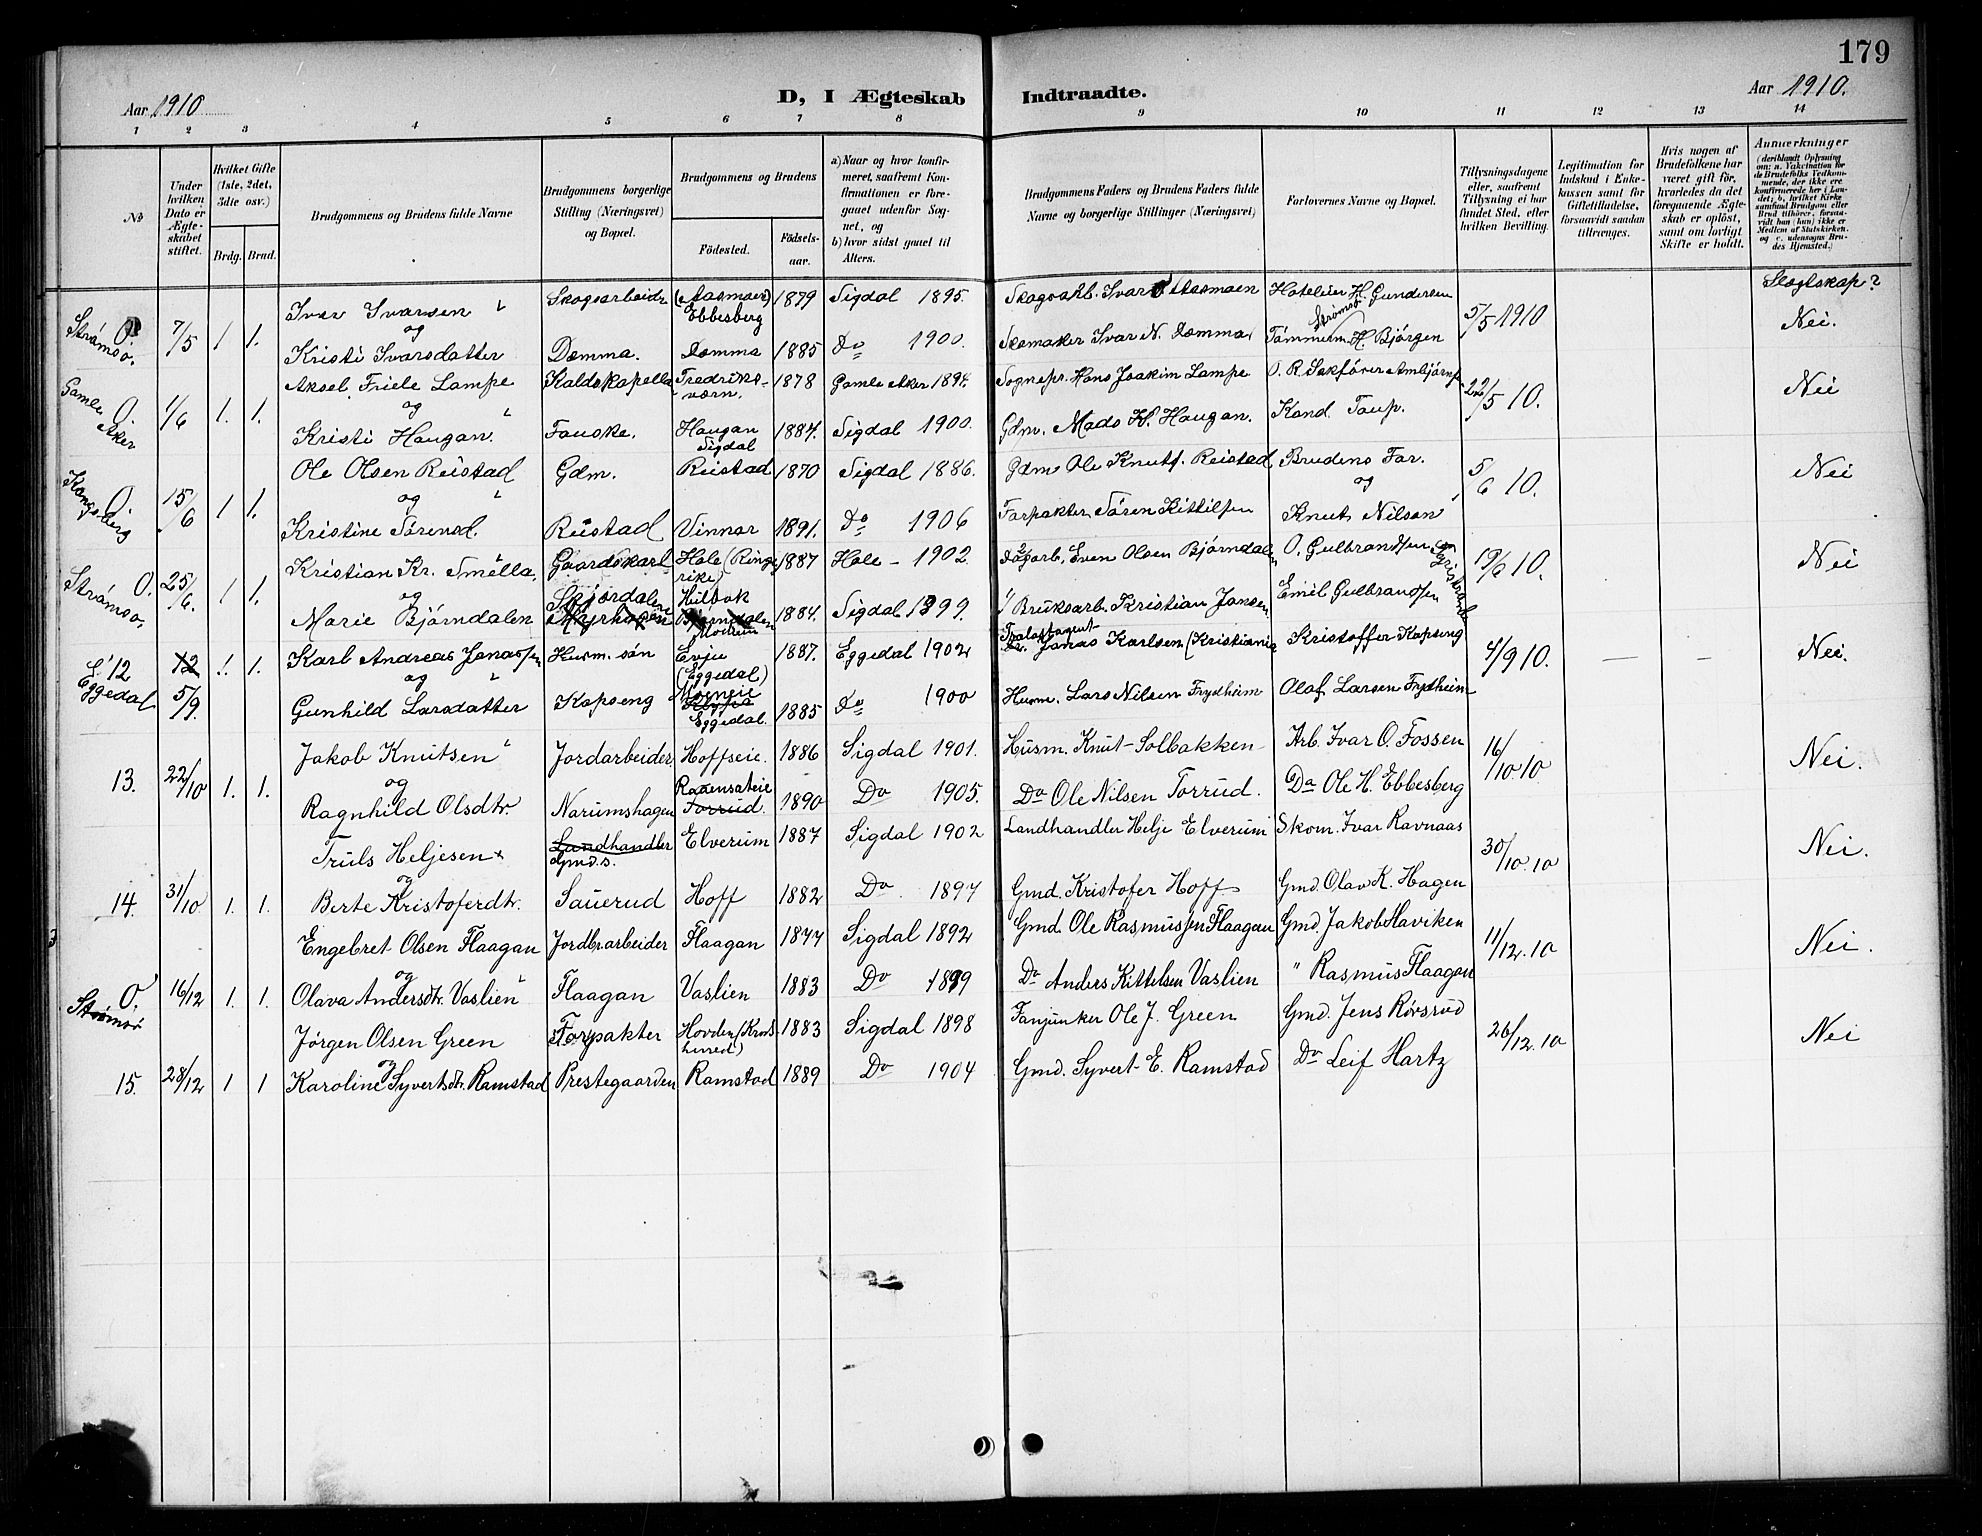 179
Aar 1910
D, I Ægteskab Indtraadte.
Aar 1910.
1 2 3 4 5 6 7 8 9 10 11 12 13 14
No
Under hvilken Dato er Ægteskabet stiftet.
Hvilket Gifte (1ste, 2det, 3die osv.)
Brdg. Brud.
Brudgommens og Brudens fulde Navne
Brudgommens borgerlige Stilling (Næringsvei) og Bopæl.
Brudgommens og Brudens
Födested.
Födselsaar.
a) Naar og hvor konfirmeret, saafremt Konfirmationen er foregaaet udenfor Sognet, og
b) hvor sidst gaaet til Alters.
Brudgommens Faders og Brudens Faders fulde Navne og borgerlige Stillinger (Næringsvei)
Forlovernes Navne og Bopæl.
Tillysningsdagene eller, saafremt Tillysning ei har fundet Sted, efter hvilken Bevilling.
Legitimation for Indskud i Enkekassen samt for Giftetilladelse, forsaavidt saadan tiltrænges.
Hvis nogen af Brudefolkene har været gift för, hvorledes da det foregaaende Ægteskab er oplöst, samt om lovligt Skifte er holdt.
Anmærkninger
(deriblandt Oplysning om: a. Vakcination for de Brudefolks Vedkommende, der ikke ere konfirmerede her i Landet; b. hvilket Kirkesamfund Brudgom eller Brud tilhörer, forsaavidt han (hun) ikke er Medlem af Statskirken, og c. udensogns Brudes Hjemsted.)
Slegtskap?
O. Strömsö. 7/5 1 1. Ivar Ivarsen Skogsarbeider (Aasmoen) Ebbesberg 1879 Sigdal 1895. Skogsarb. Ivar Aasmoen Hoteleier H. Gundersen Strömsö 5/5 1910 Nei.
og
Kristi Ivarsdatter Dæmma. Dæmma 1885 Do 1900. Skomaker Ivar N. Dæmma Tömmerm. H. Björgen
O. Gamle Aker 1/6 1. 1. Aksel Friele Lampe Kaldskapellan Fredriksværn. 1878 Gamle Aker 1894. Sognepr. Hans Joakim Lampe O. R. Sakförer 22/5 10. Nei
og
Kristi Haugan. Fauske. Haugan Sigdal 1884. Sigdal 1900. Gdm. Mads H. Haugan. Kand. Taup.
O. Kongsberg 15/6 1 1. Ole Olsen Reistad Gdm. Reistad 1870 Sigdal 1886. Gdm Ole Knuts. Reistad Brudens Far. 5/6 10. Nei
og og
Kristine Sörensd. Reistad Vinnor 1891. Do 1906 Forpakter Sören Kittilsen Knut Nilsen
O. Strömsö. 25/6. 1 1. Kristian Kr. Smölla. Gaardskarl Hole (Ringerike) 1887 Hole - 1902. Dagarb. Even Olsen Björndalen O. Gulbrandsen 19/6 10. Nei
og
Marie Björndalen Skjørdalen Hilbok Modum 1884. Sigdal 1899. Bruksarb. Kristian Jansen Emil Gulbrandsen
E. 12 Eggedal 12 5/9. 1. 1. Karl Andreas Jonassen Husm. sön Evju (Eggedal) 1887. Eggedal 1902 Jonas Karlsen (Kristiania Kristoffer Kopseng 4/9 10. — — Nei.
og
Gunhild Larsdatter Kopseng Moeneie Eggedal. 1885 Do 1900 Husm. Lars Nilsen Frydheim Olaf Larsen Frydheim
13. 22/10 1. 1. Jakob Knutsen Jordarbeider Hoffseie. 1886 Sigdal 1901. Husm. Knut Solbakken Arb. Ivar O. Fossen 16/10. 10 Nei.
og
Ragnhild Olsdtr. Narumshagen Raaensateie Torrud. 1890 Do 1905. Do Ole Nilsen Torrud. Do Ole H. Ebbesberg
14. 31/10 1. 1. Truls Heljesen Landhandler Gmd.s. Elverum 1887 Sigdal 1902 Landhandler Helje Elverum Skom. Ivar Ravnaas 30/10. 10 Nei.
og
Berte Kristoferdtr. Sauerud Hoff 1882 Do 1897 Gmd. Kristofer Hoff Gmd. Olav K. Hagen
O. Strömsö 16/12 1. 1. Engebret Olsen Flaagan Jordbr.arbeider Flaagan 1877 Sigdal 1892 Gmd. Ole Rasmussen Flaagan Gmd. Jakob Haviken 11/12. 10 Nei.
og
Olava Andersdtr. Vaslien Flaagan Vaslien 1883 Do 1899 Do Anders Kittelsen Vaslien " Rasmus Flaagan
15. 28/12 1 1 Jørgen Olsen Green Forpakter Hovden (Krødshered) 1883 Sigdal 1898 Fanjunker Ole J. Green Gmd. Jens Røvsrud 26/12. 10 Nei
og
Karoline Syvertsdtr. Ramstad Prestegaarden Ramstad 1889 Do 1904 Gmd. Syvert E. Ramstad Do Leif Hartz